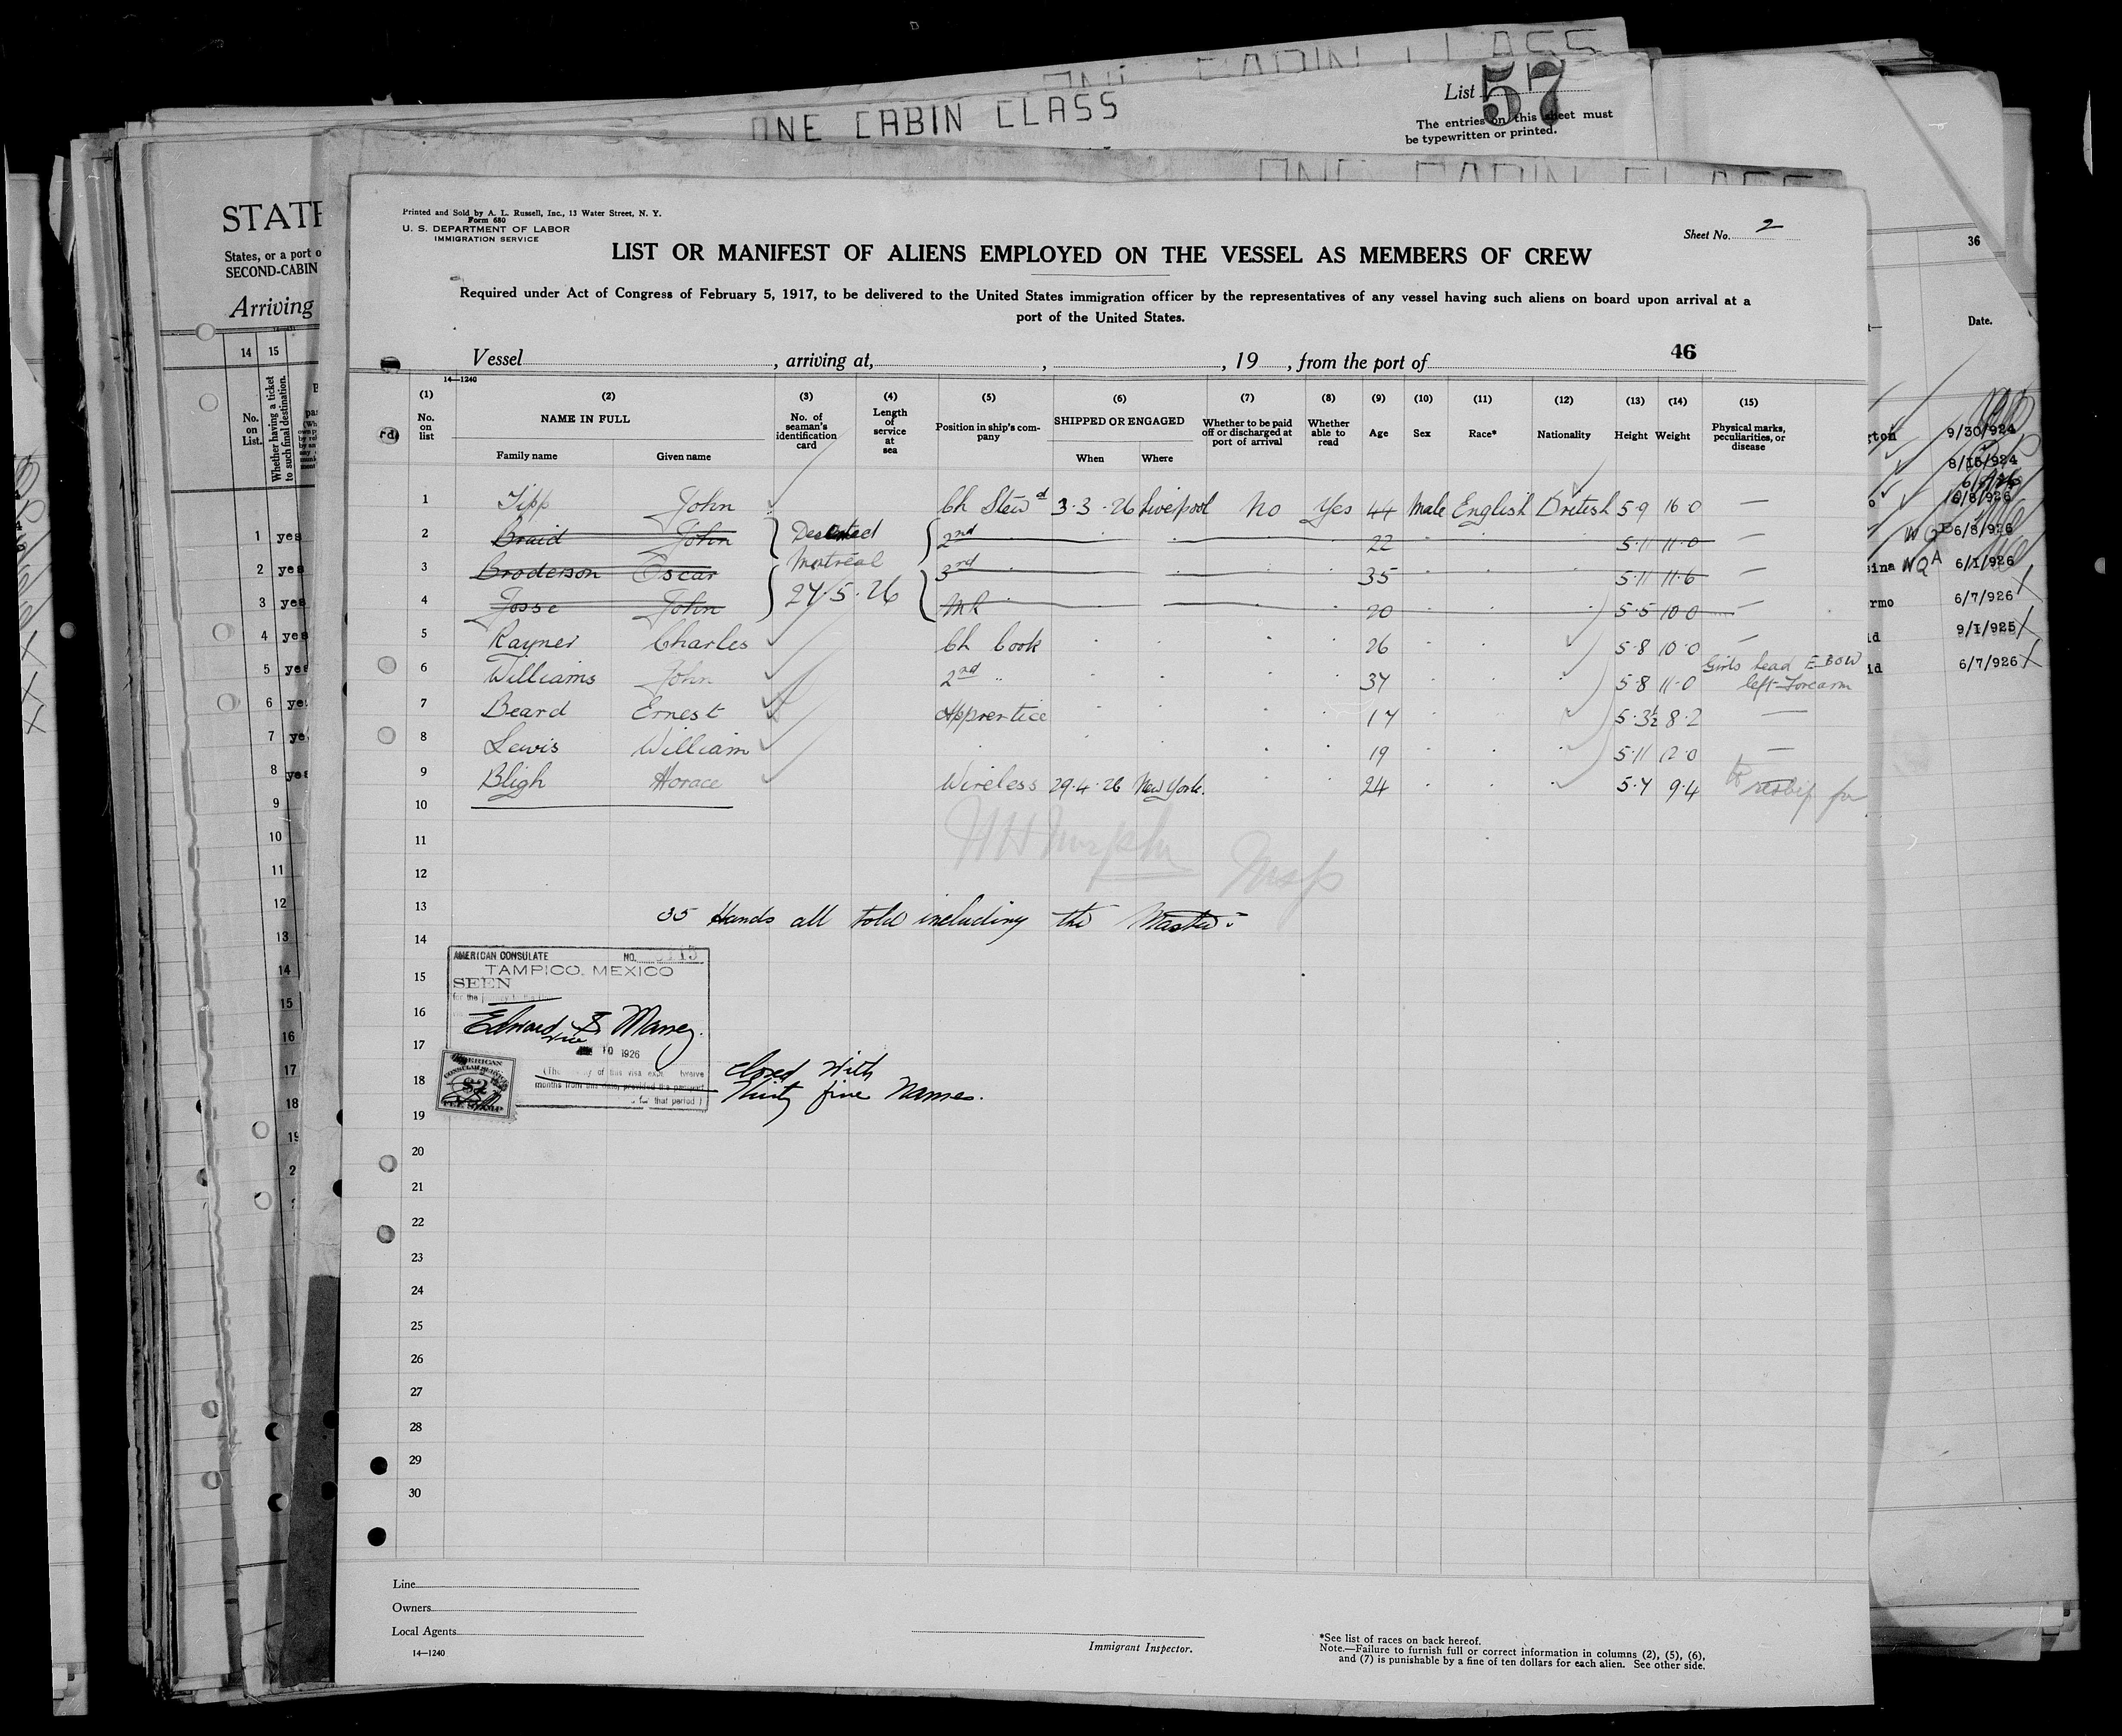 ONE CABIN CLASS
List 57
The entries on this sheet must
be typewritten or printed.
STATE
States, or a port o
SECOND-CABIN
Arriving
14 15
No.
on
List.
Whether having a ticket
to such final destination.
1 yes
2 yes
3 yes
4 yes
5 yes
6 ye
7 ye
8 yes
9
10
11
12
13
14
15
16
17
18
Printed and Sold by A. L. Russell, Inc., 13 Water Street, N. Y.
Form 680
U. S. DEPARTMENT OF LABOR
IMMIGRATION SERVICE
Sheet No. 2
LIST OR MANIFEST OF ALIENS EMPLOYED ON THE VESSEL AS MEMBERS OF CREW
Required under Act of Congress of February 5, 1917, to be delivered to the United States immigration officer by the representatives of any vessel having such aliens on board upon arrival at a
port of the United States.
46
Vessel , arriving at, , , 19 , from the port of
14—1240
(1) (2) (3) (4) (5) (6) (7) (8) (9) (10) (11) (12) (13) (14) (15)
No. on list
NAME IN FULL
Family name Given name
No. of seaman's identification card
Length of service at sea
Position in ship's company
SHIPPED OR ENGAGED
When Where
Whether to be paid off or discharged at port of arrival
Whether able to read
Age Sex Race* Nationality Height Weight
Physical marks, peculiarities, or disease
1 Tipp John Ch Stewd 3.3.26 Liverpool No Yes 44 Male English British 5.9 16.0 —
2 Braid John Deserted 2nd 22 5.11 11.0 —
3 Broderson Oscar Montreal 3rd 35 5.11 11.6 —
4 Fosse John 27.5.26 MR 20 5.5 10.0 —
5 Rayner Charles Ch Cook 26 5.8 10.0 —
6 Williams John 2nd " 37 5.8 11.0 Girls head E BOW
left Forearm
7 Beard Ernest Apprentice 17 5.3½ 8.2 —
8 Lewis William 19 5.11 12.0 —
9 Bligh Horace Wireless 29.4.26 New York. 24 5.7 9.4
10
11
12
13 35 Hands all told including the Master
14
15
16
17
18
19
20
21
22
23
24
25
26
27
28
29
30
AMERICAN CONSULATE NO.
TAMPICO, MEXICO
SEEN
for the
Edward S. Maney.
vice
10 1926
months from this date, provided the passport
for that period)
closed with
thirty five names.
Line
Owners
Local Agents
14—1240
Immigrant Inspector.
*See list of races on back hereof.
Note.—Failure to furnish full or correct information in columns (2), (5), (6),
and (7) is punishable by a fine of ten dollars for each alien. See other side.
36
Date.
9/30/924
8/15/924
6/8/926
6/1/926
6/7/926
9/1/925
6/7/926